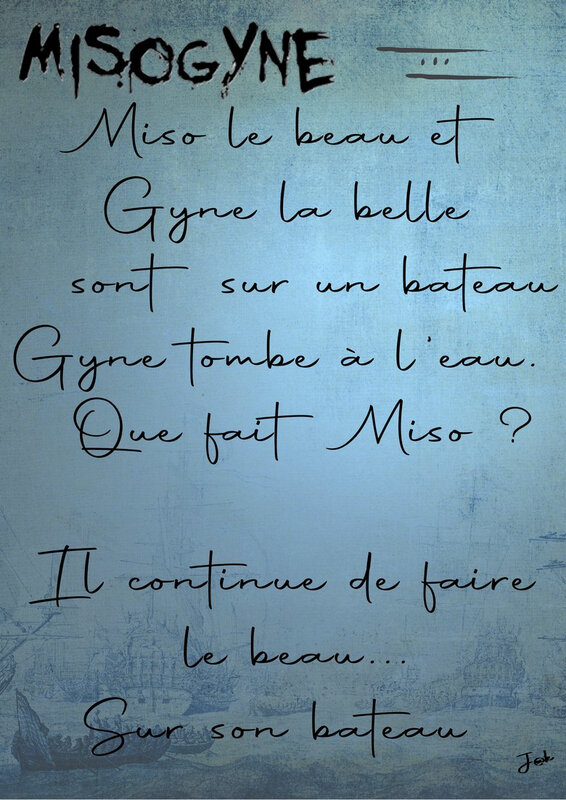 MISOGYNE
Miso le beau et
Gyne la belle
sont sur un bateau
Gyne tombe à l'eau.
Que fait Miso ?
Il continue de faire
le beau...
Sur son bateau